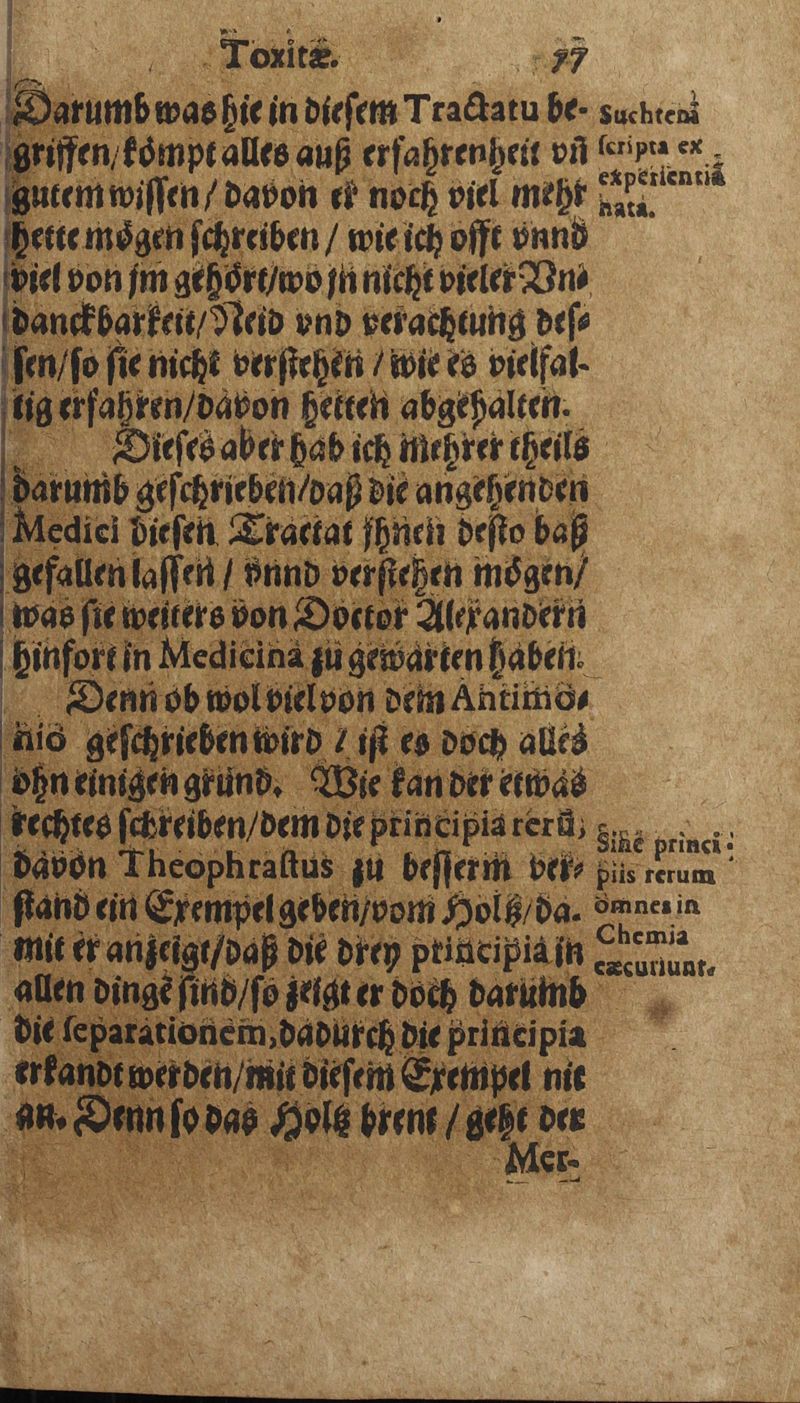 Toxitæ. 77
Darumb was hie in diesem Tractatu be-
griffen/kömpt alles auß erfahrenheit vñ
gutem wissen/ davon er noch viel mehr
hette mögen schreiben / wie ich offt vnnd
viel von jm gehört/wo jn nicht vieler Vn-
danckbarkeit/Neid vnd verachtung des-
sen/so sie nicht verstehen / wie es vielfal-
tig erfahren/davon hetten abgehalten.
Dieses aber hab ich mehrer theils
darumb geschrieben/daß die angehenden
Medici diesen Tractat jhnen desto baß
gefallen lassen / vnnd verstehen mögen/
was sie weiters von Doctor Alexandern
hinfort in Medicina zu gewarten haben.
Denn ob wol viel von dem Antimo-
nio geschrieben wird / ist es doch alles
ohn einigen grund. Wie kan der etwas
rechtes schreiben/dem die principia rerū,
davon Theophrastus zu besserm ver-
stand ein Exempel geben/vom Holtz/da-
mit er anzeigt/daß die drey principia in
allen dingē sind/so zeigt er doch darumb
die separationem,dadurch die principia
erkandt werden/mit diesem Exempel nit
an. Denn so das Holtz brent / geht der
Mer-
Suchtenā
scripta ex
experientiâ
nata.
Sine princi-
piis rerum
omnes in
Chemia
cæcuriunt.